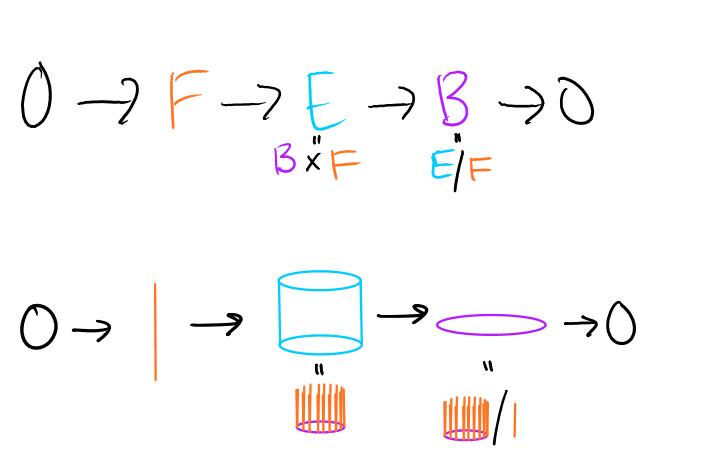 0 → F → E → B → 0
" "
B × F E/F
0 → | → → → 0
" "
/ |